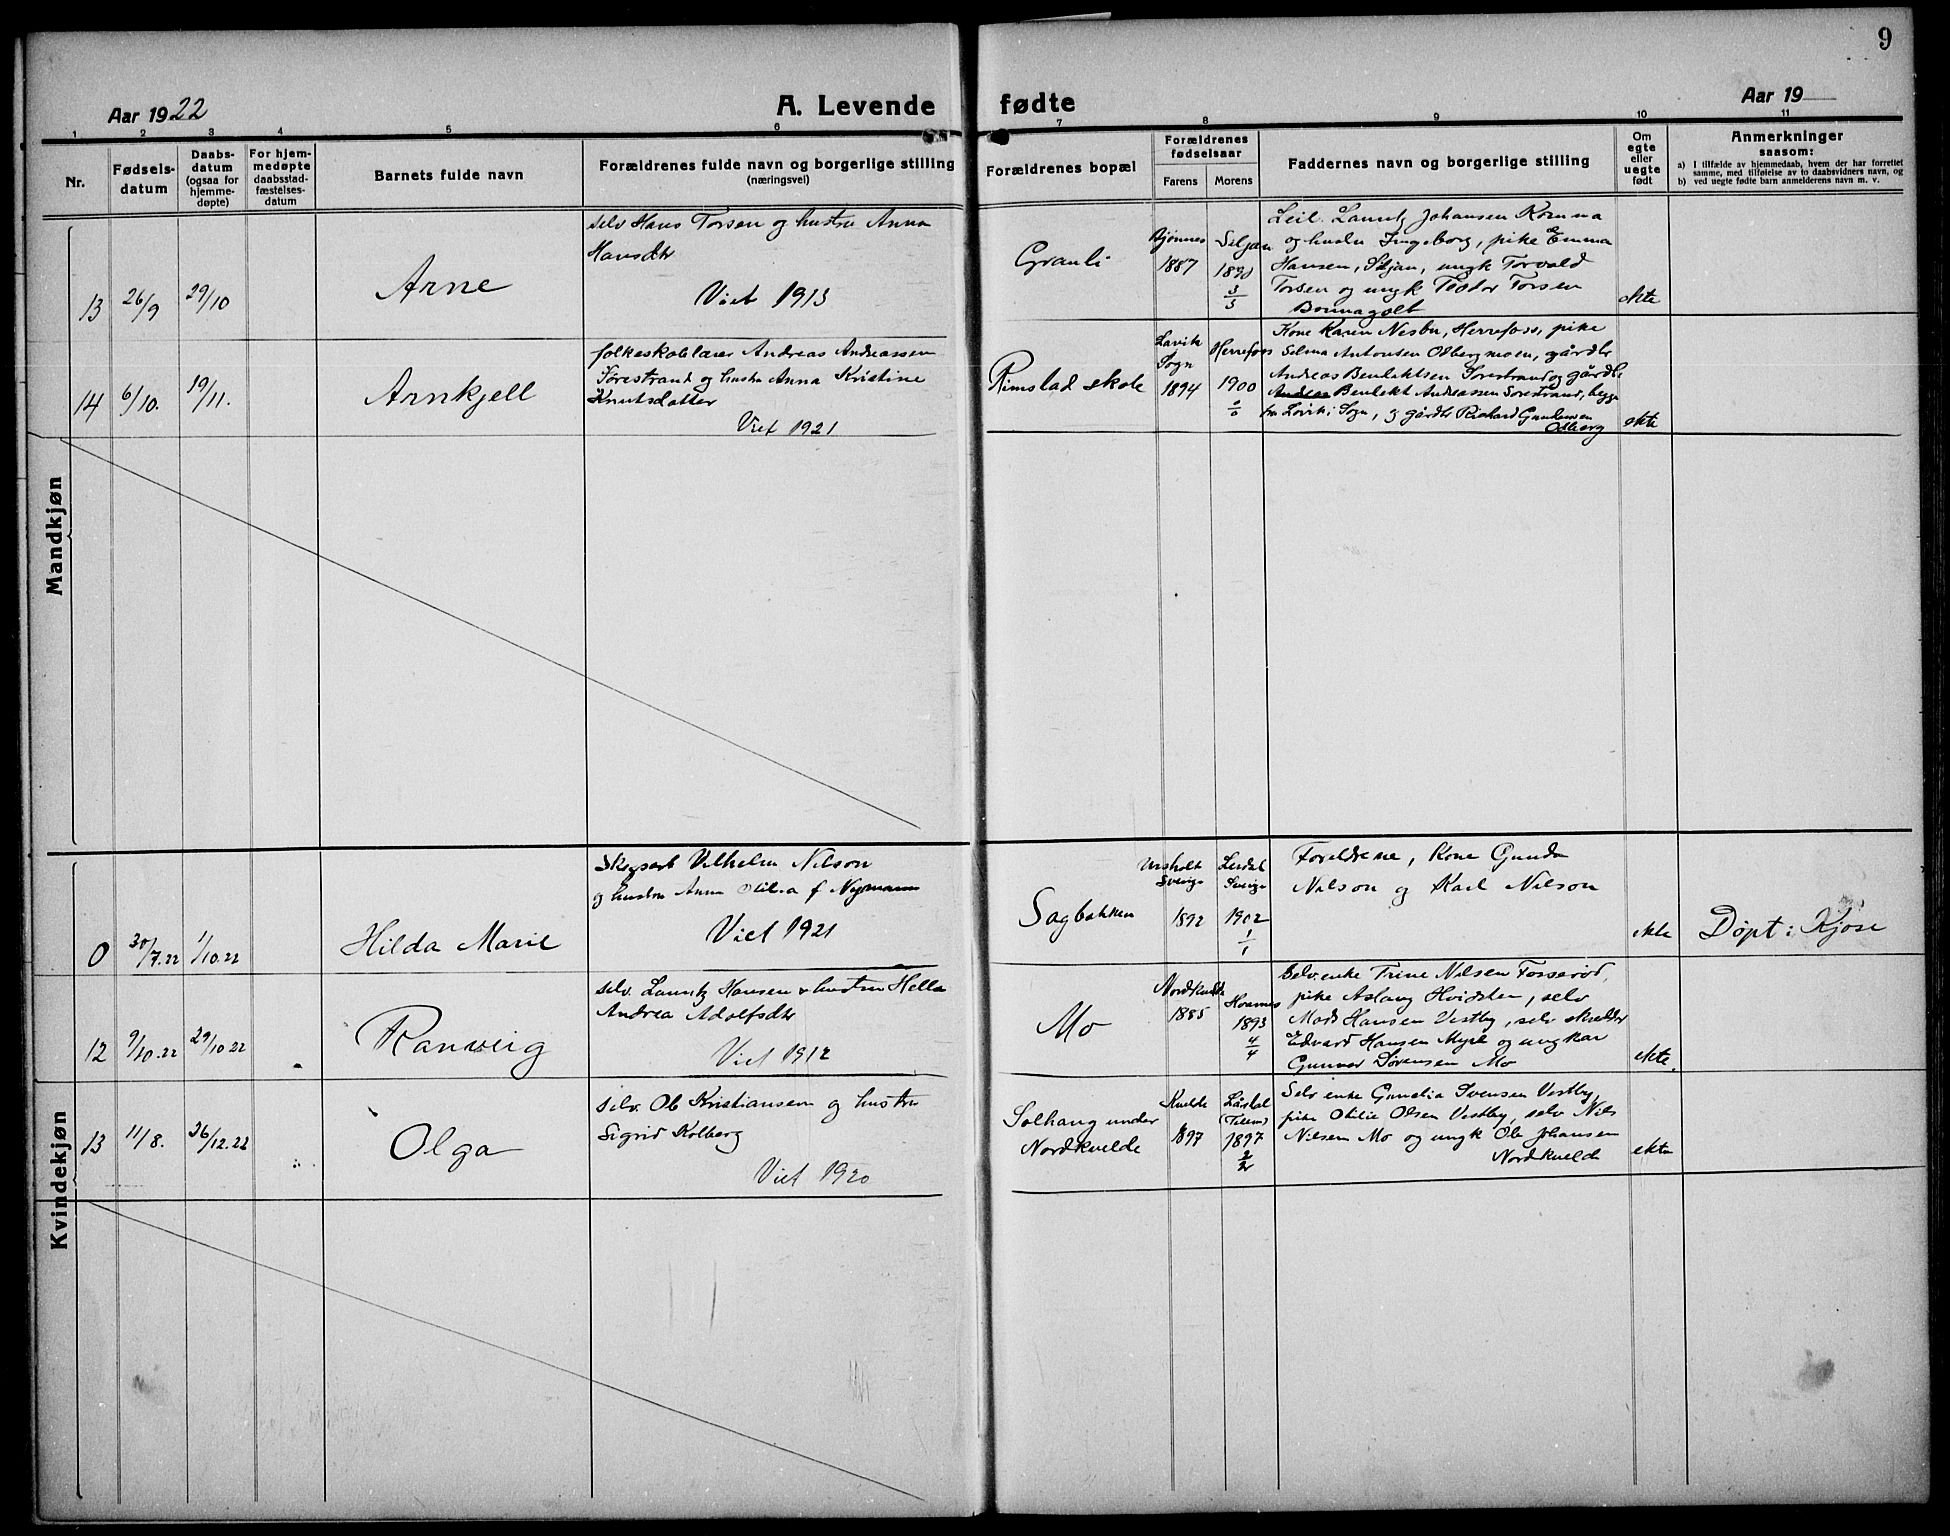 9
Aar 1922
A. Levende
fødte
Aar 19
1 2 3 4 5 6 7 8 9 10 11
Nr.
Fødsels-
datum
Daabs-
datum
(ogsaa for
hjemme-
døpte)
For hjem-
medøpte
daabsstad-
fæstelses-
datum
Barnets fulde navn
Forældrenes fulde navn og borgerlige stilling
(næringsvei)
Forældrenes bopæl
Forældrenes
fødselsaar
Farens Morens
Faddernes navn og borgerlige stilling
Om
egte
eller
uegte
født
Anmerkninger
saasom:
a) I tilfælde av hjemmedaab, hvem der har forrettet
samme, med tilføielse av to daabsvidners navn, og
b) ved uegte fødte barn anmelderens navn m. v.
Mandkjøn
13 26/9 29/10
Arne
selv Hans Torsen og hustru Anna
Hansdtr
Viet 1913
Granli
Bjønnes
1887
Siljan
1890
3/3
Leil. Lauritz Johansen Romma
og hustru Ingeborg, pike Emma
Hansen, Siljan, ungk Torvald
Torsen og ungk Teodor Torsen
Bonnagolt
ekte
14 6/10. 19/11.
Arnkjell
folkeskolelærer Andreas Andreassen
Sørestrand og hustru Anna Kristine
Knutsdatter
Viet 1921
Rimstad skole
Lavik
Sogn
1894
Herrefoss
1900
Kone Karen Nesbu, Herrefoss, pike
Selma Antonsen Odbergmoen, gårdbr
Andreas Bendiktsen Sørestrand og gårdbr
Andreas Bendikt Andreassen Sørestrand, begge
fra Lavik i Sogn, og gårdbr Richard Gundersen
Odberg
ekte
Kvindekjøn
0 30/7.22 1/10.22
Hilda Marie
Vilhelm Nilson
og hustru Anna Otilia f. Nymann
Viet 1921
Sagbakken
Sverige
1892
Sverige
1902
1/1
Foreldrene, Kone Gunda
Nilson og Karl Nilson
ekte
Døpt i Kjose
12 9/10.22 29/10.22
Ranveig
selv. Lauritz Hansen & hustru Hella
Andrea Adolfsdtr
Viet 1912
Mo
Nordkvelde
1885
Hvarnes
1893
4/4
Selv. enke Trine Nilsen Fosserød,
pike Aslaug Hvidsten, selv
Mads Hansen Vestby, selv skredder
Edvard Hansen Myre og ungkar
Gunnar Sørensen Mo
ekte.
13 11/8. 26/12.22
Olga
selv. Ole Kristiansen og hustru
Sigrid Kolberg
Viet 1920
Solhaug under
Nordkvelde
Kvelde
1897
Lårdal
(Telem)
1897
2/2
Selv enke Gunelia Svensen Vestby,
pike Otilie Olsen Vestby, selv Nils
Nilsen Mo og ungk Ole Johansen
Nordkvelde
ekte